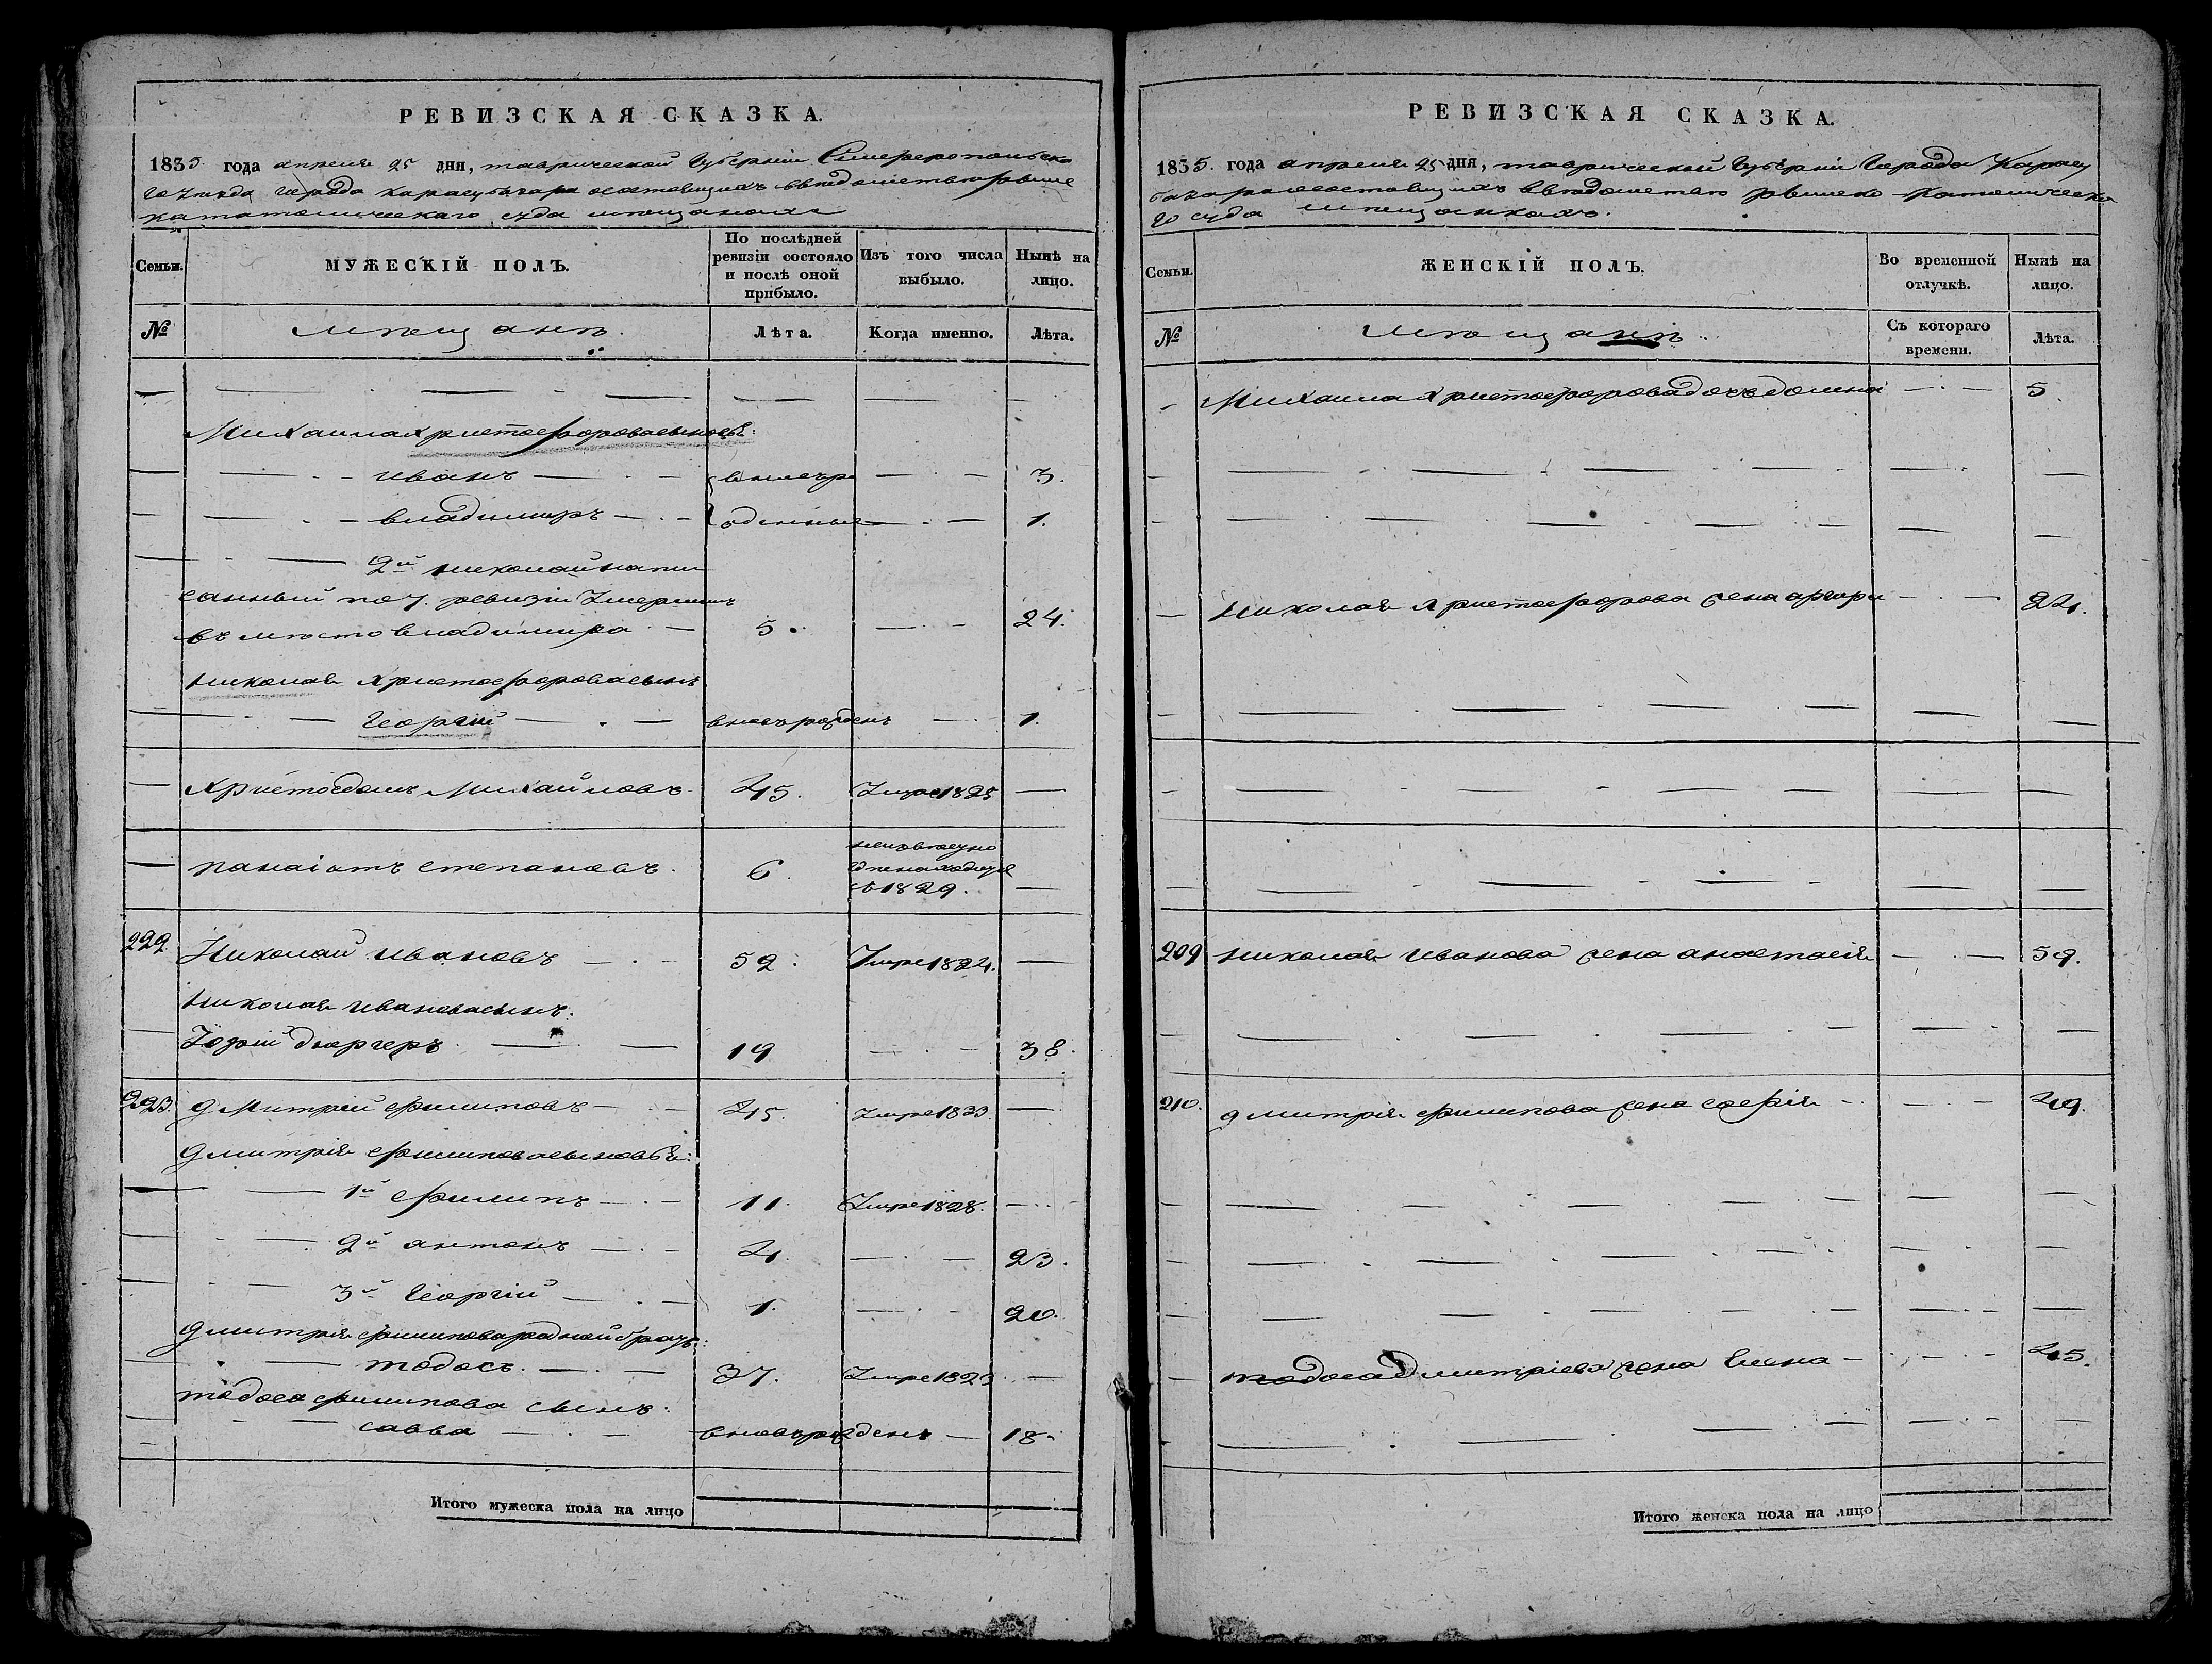 РЕВИЗСКАЯ СКАЗКА.
1835 года апреля 25 дня, таврической Губернии Симферопольска
го уезда города карасубазара состоящихъ ввѣдомстве римско
кататолическаго суда мѣщанахъ
Семьи.
МУЖЕСКІЙ ПОЛЪ.
По послѣдней ревизіи состояло и послѣ оной прибыло.
Изъ того числа выбыло.
Нынѣ на лицо.
№
мѣщанъ.
Лѣта.
Когда именно.
Лѣта.
Михаила христофорова сыновья:
иванъ вновь ро 3.
владимиръ жденные 1.
2й николай напи
санный по 7. ревизіи
въ мѣсто владимира 5. 24.
николая христофорова сынъ
Георгій вновь рожденъ 1.
Христодолъ Михайловъ 45. Умре 1825
панаіотъ степановъ. 6. неизвестно
где находится
съ 1829.
222. Николай ивановъ 52. Умре 1824.
николая иванова сынъ:
19 38.
223. Дмитрій филиповъ 45. Умре 1833.
Дмитрія филипова сыновья:
1й филипъ 11. Умре 1828.
2й антонъ 4. 23.
3й Георгій 1. 20.
Дмитрія филипова родной братъ:
тодосъ. 37. Умре 1823
тодоса филипова сынъ:
савва вновь рожденъ 18.
Итого мужеска пола на лицо
РЕВИЗСКАЯ СКАЗКА.
1835. года апреля 25 дня, таврической Губерніи Города Карасу
базара состоящихъ ввѣдомстве римско-католическа
го суда мѣщанкахъ.
Семьи.
ЖЕНСКІЙ ПОЛЪ.
Во временной отлучкѣ.
Нынѣ на лицо.
№
мѣщанъ
Съ котораго времени.
Лѣта.
Михаила христофорова дочь домна 5.
николая христофорова жена 24.
209 николая Иванова жена анастасія 59.
210. Дмитрія филипова жена софія 49.
тодоса Дмитріева жена Елена 45.
Итого женска пола на лицо